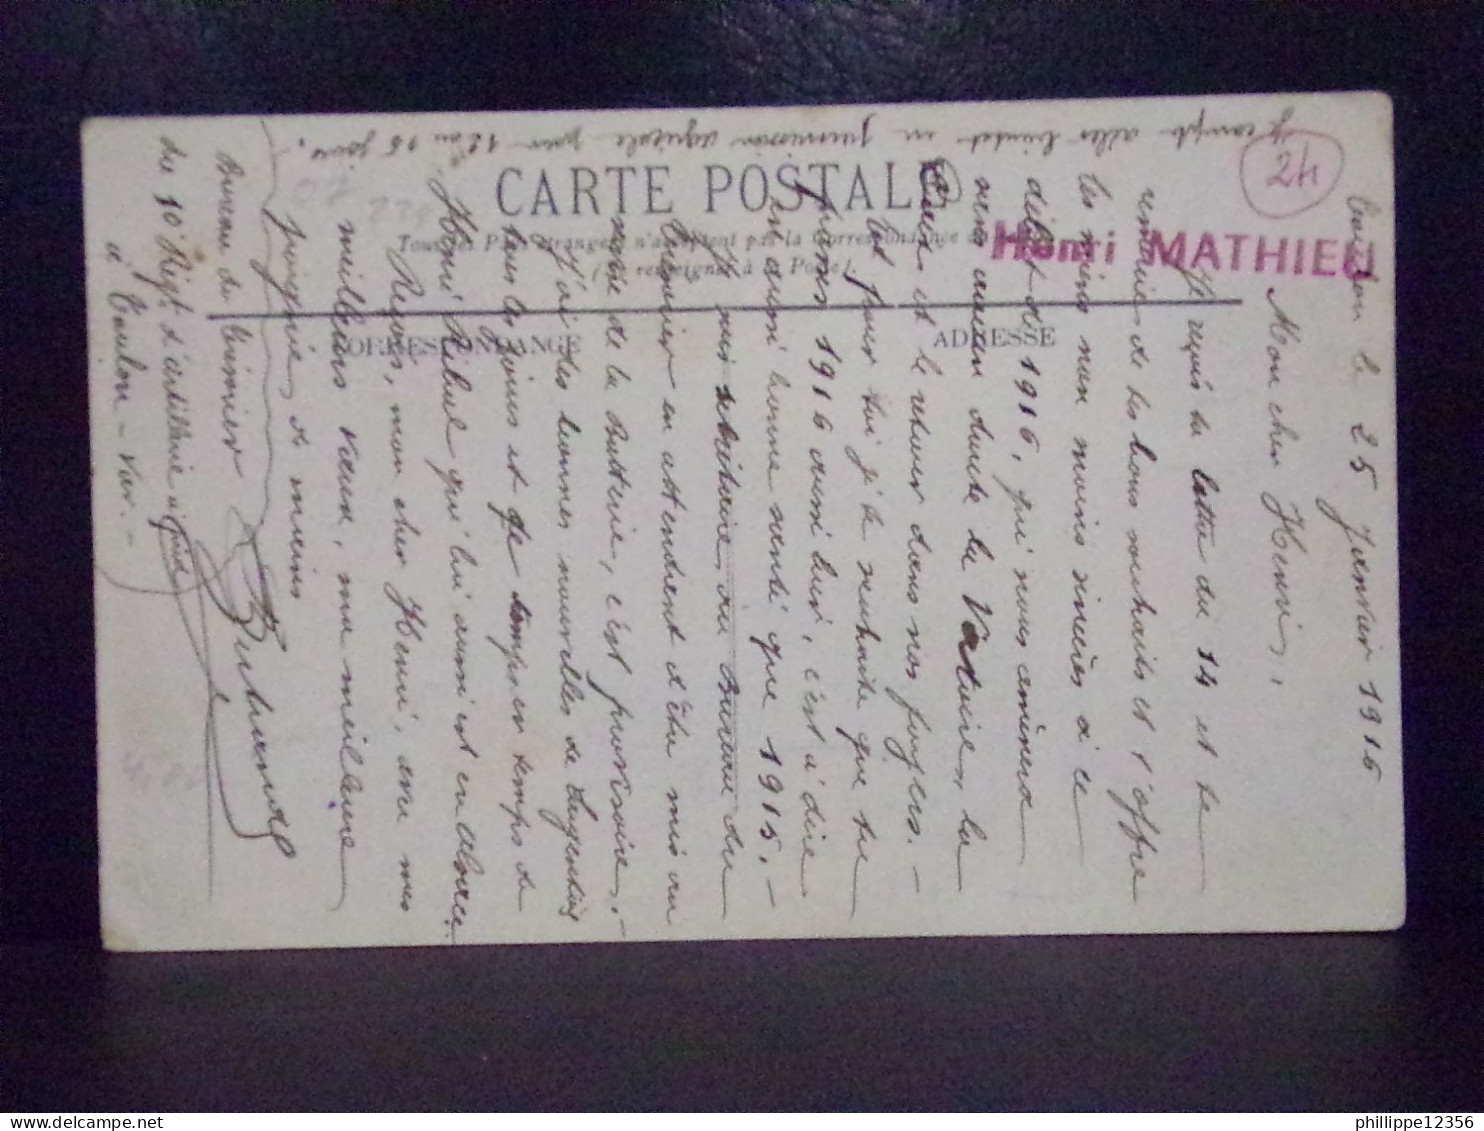 CARTE POSTALE
Tous les Pays étrangers n'acceptent pas la Correspondance au
(Se renseigner à la Poste).
CORRESPONDANCE
ADRESSE
Henri MATHIEU
24
Toulon le 25 Janvier 1916
Mon cher Henri,
reçu ta lettre du 14 et te
remercie de tes bons souhaits et t'offre
les miens non moins sincères à ce
début de 1916, qui nous amènera
sans aucun doute la Victoire, la
et le retour dans nos foyers. -
Et pour lui je te souhaite que tu
1916 aussi bien, c'est à dire
en aussi bonne santé que 1915. -
suis secrétaire au Bureau du
Trésorier en attendant d'être mis au
de la batterie, c'est provisoire, -
J'ai des bonnes nouvelles de
tous les jours et de temps en temps de
Henri qui lui aussi est en alsace.
Reçois, mon cher Henri, avec mes
meilleurs vœux, ma meilleure
poignée de mains
Bureau du Trésorier
du 10e Régt d'artillerie à pied
à Toulon - Var. -
Je compte aller bientôt en permission agricole pour 12 ou 15 jours.
phillippe12356